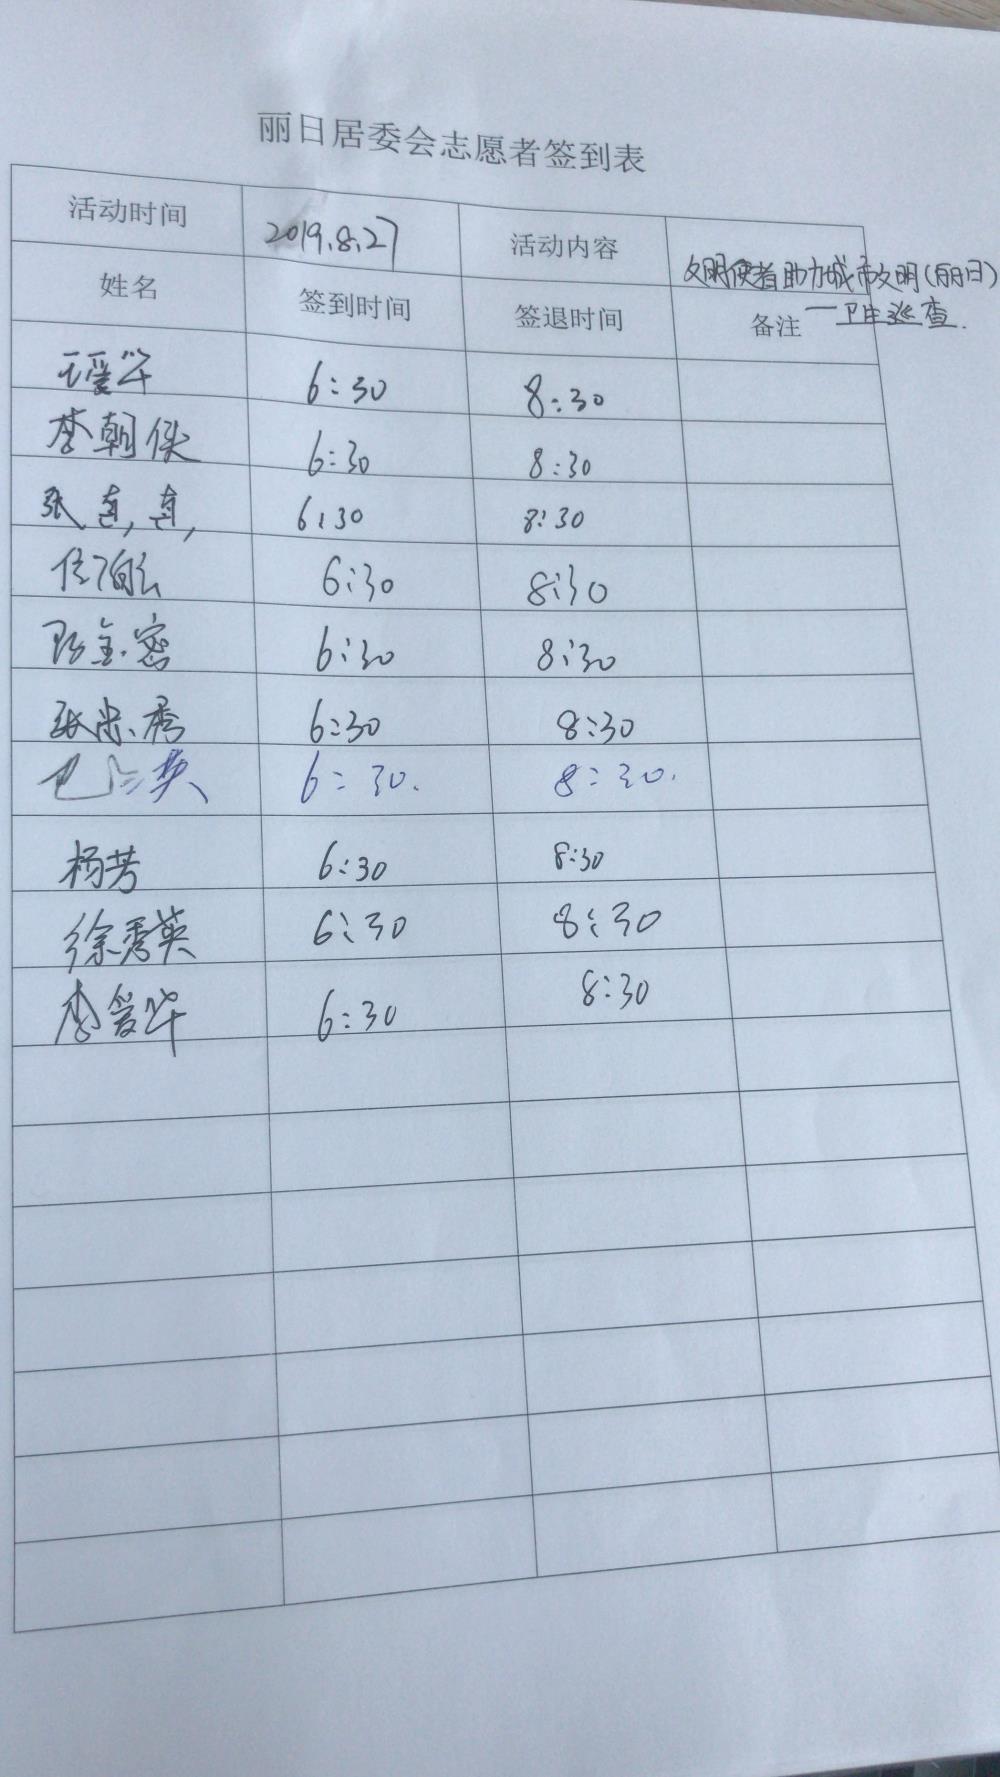 丽日居委会志愿者签到表
活动时间 2019.8.27 活动内容 文明使者助力城市文明(丽日)
一卫生巡查.
姓名 签到时间 签退时间 备注
王爱华 6:30 8:30
李朝侠 6:30 8:30
张真,真, 6:30 8:30
6:30 8:30
6:30 8:30
张忠秀 6:30 8:30
6:30. 8:30.
杨芳 6:30 8:30
徐秀英 6:30 8:30
李爱华 6:30 8:30